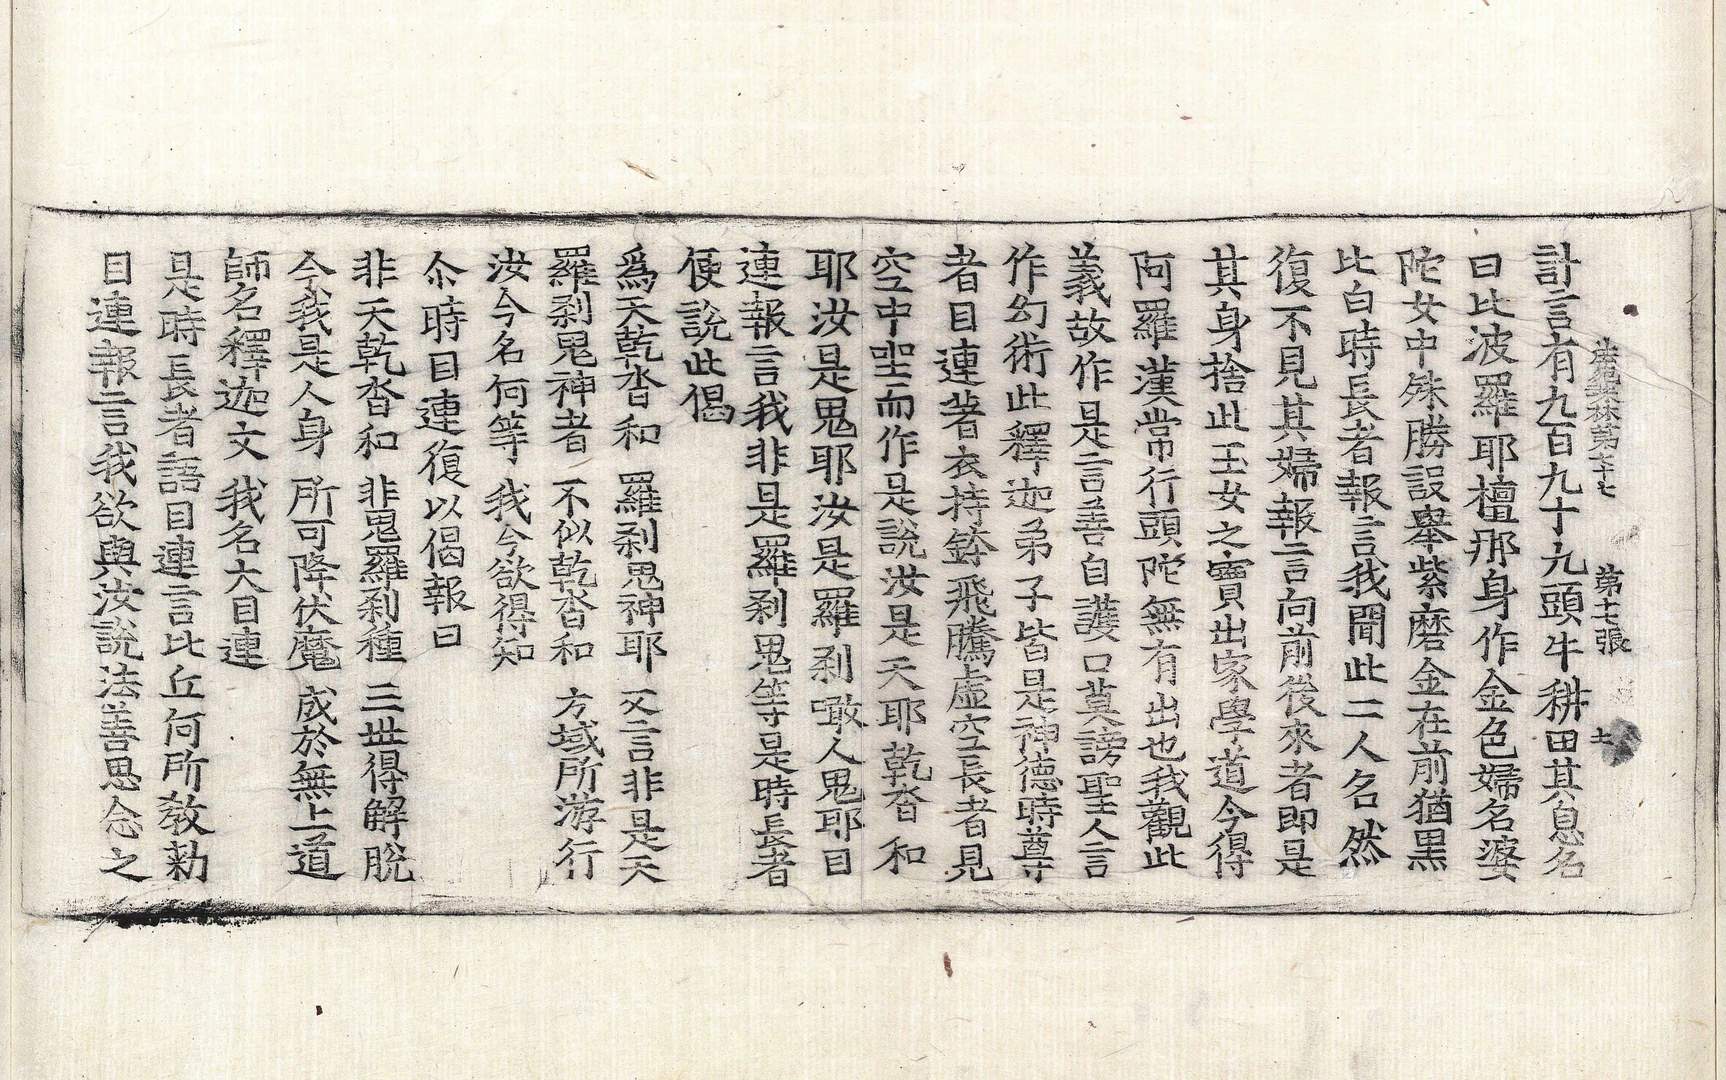 廣集林第七十七　第十七張　七
計言有九百九十九頭牛耕田其息名
曰比波羅耶檀那身作金色婦名婆
陀女中殊勝設舉紫磨金在前猶黑
比白時長者報言我聞此二人名然
復不見其婦報言向前後來者即是
其身捨此玉女之寶出家學道今得
阿羅漢常行頭陀無有出也我觀此
義故作是言善自護口莫謗聖人言
作幻術此釋迦弟子皆是神德時尊
者目連著衣持鉢飛騰虛空長者見
空中坐而作是說汝是天耶乾沓和
耶汝是鬼耶汝是羅剎噉人鬼耶目
連報言我非是羅剎鬼等是時長者
便說此偈
為天乾沓和　羅剎鬼神耶　又言非是天
羅剎鬼神者　不似乾沓和　方域所游行
汝今名何等　我今欲得知
尒時目連復以偈報曰
非天乾沓和　非鬼羅剎種　三世得解脫
今我是人身　所可降伏魔　成於無上道
師名釋迦文　我名大目連
是時長者語目連言比丘何所教勑
目連報言我欲與汝說法善思念之